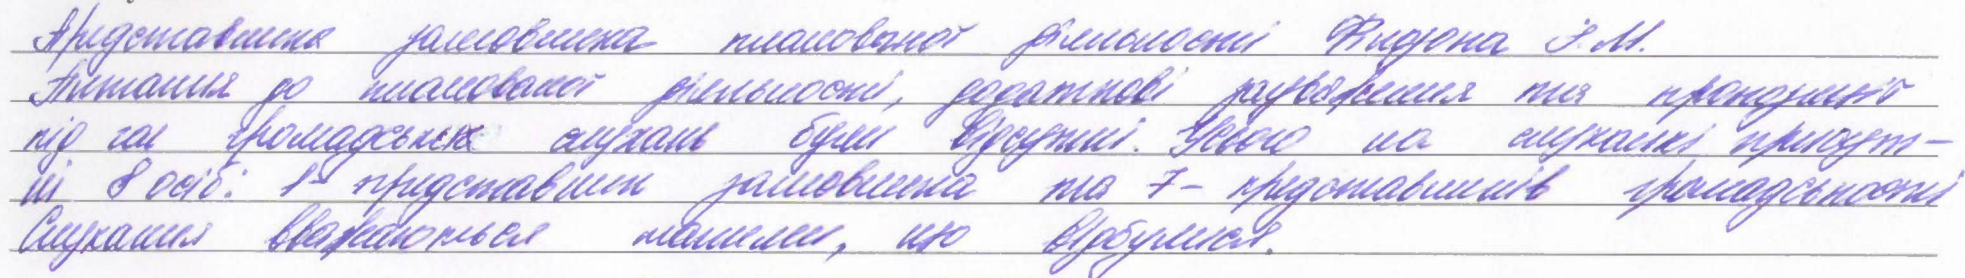 Представника замовника планованої діяльності І.М.
Питання до планованої діяльності, додаткові зауваження та пропозиції
під час громадських слухань були відсутні. Усього на слуханні присут-
ні 8 осіб: 1- представник замовника та 7- представників громадськості
Слухання вважаються такими, що відбулися.